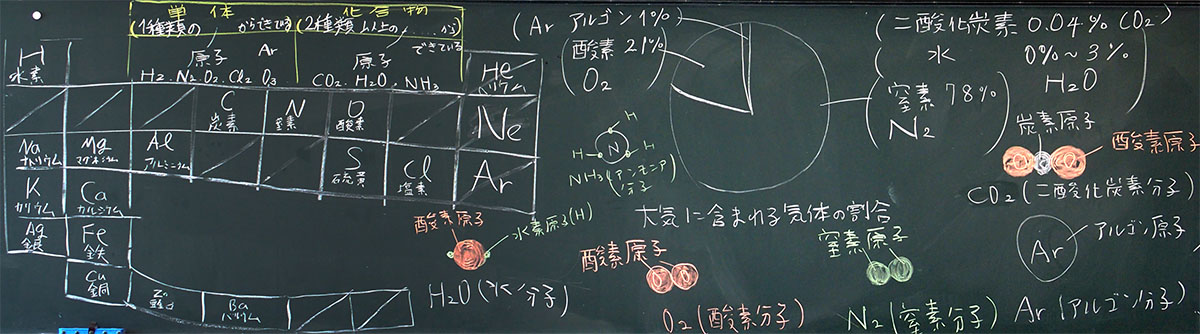 単体
化合物
(1種類の
からできている
(2種類以上の
から)
できている
原子
Ar
原子
H₂.N₂.O₂.Cl₂ O₃
CO₂.H₂O,NH₃
H
水素
He
ヘリウム
C
炭素
N
窒素
O
酸素
Ne
Na
ナトリウム
Mg
マグネシウム
Al
アルミニウム
S
石硫黄
Cl
塩素
Ar
K
カリウム
Ca
カルシウム
Ag
銀
Fe
鉄
Cu
銅
Zn
亜鉛
Ba
バリウム
酸素原子
水素原子(H)
H₂O(水分子)
(Ar アルゴン 1%)
(酸素 21%
O₂)
(二酸化炭素 0.04% CO₂)
(水 0%~3%
H₂O)
(窒素 78%
N₂)
H
N
H
H
NH₃(アンモニア
分子)
大気に含まれる気体の割合
炭素原子
酸素原子
O
C
O
CO₂(二酸化炭素分子)
酸素原子
O
O
O₂(酸素分子)
窒素原子
N₂(窒素分子)
アルゴン原子
Ar
Ar(アルゴン分子)